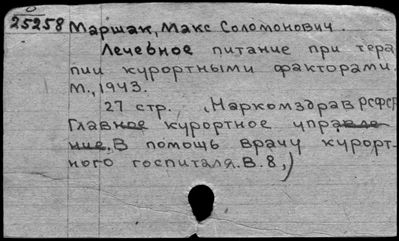 25258 Маршак, Макс Соломонович.
Лечебное питание при тера
пии курортными факторами.
М., 1943.
27 стр. (Наркомздрав РСФСР
Главное курортное управле-
ние. В помощь врачу курорт-
ного госпиталя. В. 8,)